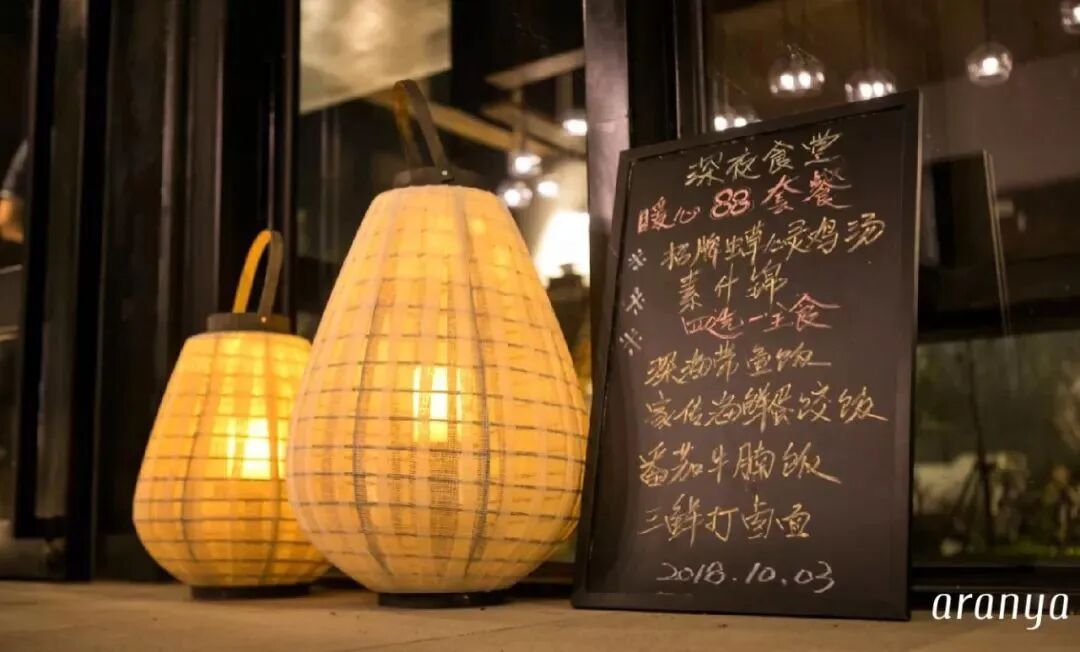 深夜食堂
暖心88套餐
招牌虫草煲鸡汤
素什锦
四选一主食
深海带鱼饭
家传海鲜蛋饺饭
番茄牛腩饭
三鲜打卤面
2018.10.03
aranya